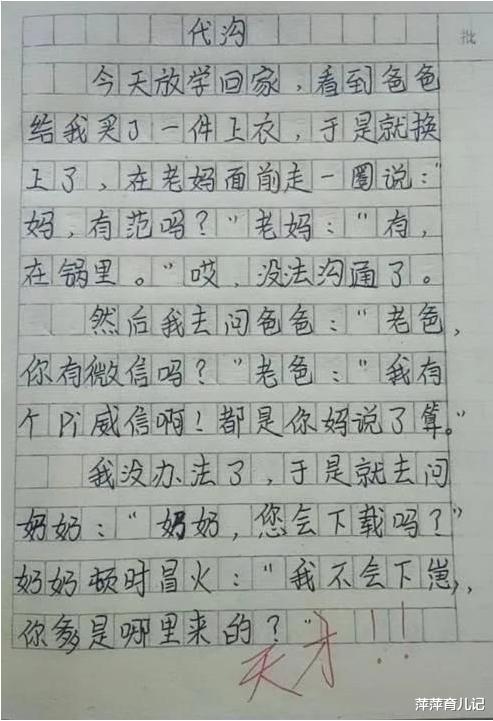 代沟
批
今天放学回家，看到爸爸
给我买了一件上衣，于是就换
上了，在老妈面前走一圈说："
妈，有范吗？"老妈："有，
在锅里。"哎，没法沟通了。
然后我去问爸爸："老爸，
你有微信吗？"老爸："我有
个Pi威信啊！都是你妈说了算。"
我没办法了，于是就去问
奶奶："奶奶，您会下载吗？"
奶奶顿时冒火："我不会下崽，
你爹是哪里来的？"
天才!!
萍萍育儿记